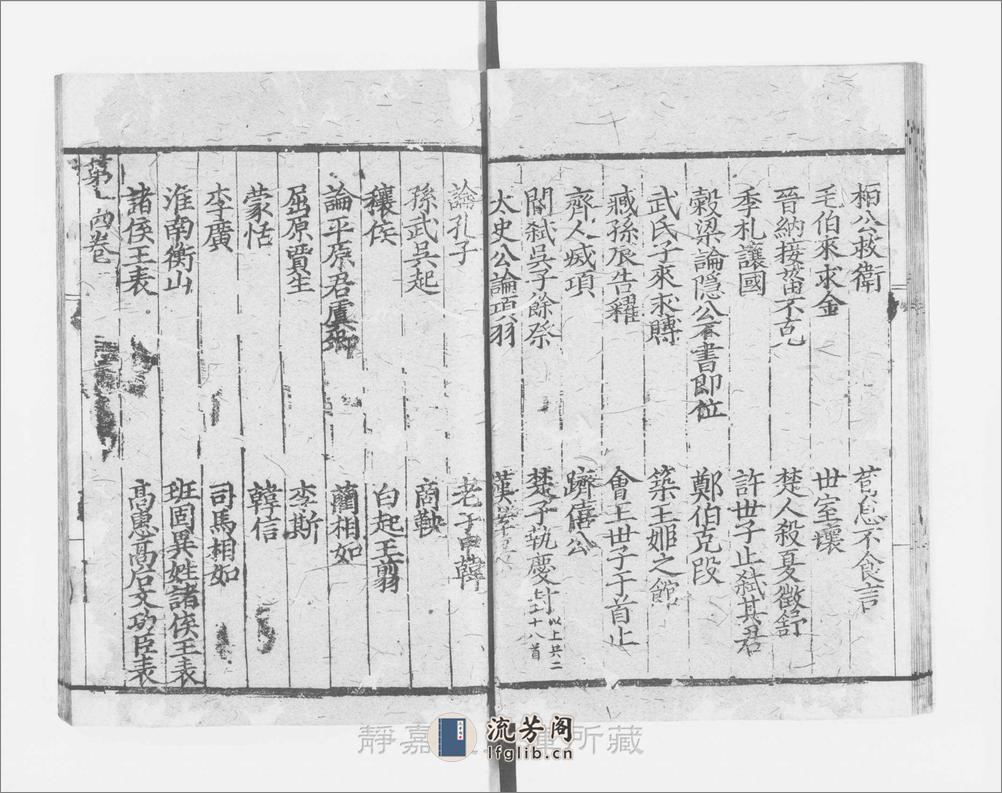 桓公救衛 荀息不食言
毛伯來求金 世室壞
晉納接菑不克 楚人殺夏徵舒
季札讓國 許世子止弒其君
穀梁論隱公不書即位 鄭伯克段
武氏子來求賻 築王姬之館
臧孫辰告糴 會王世子于首止
齊人滅項 躋僖公
閽弒吳子餘祭 楚子執慶封 以上共二十八首
太史公論項羽 漢
論孔子 老子申韓
孫武吳起 商鞅
穰侯 白起王翦
論平原君虞卿 藺相如
屈原賈生 李斯
蒙恬 韓信
李廣 司馬相如
淮南衡山 班固異姓諸侯王表
諸侯王表 高惠高后文功臣表
第 卷
靜嘉 所藏
流芳阁
lfglib.cn